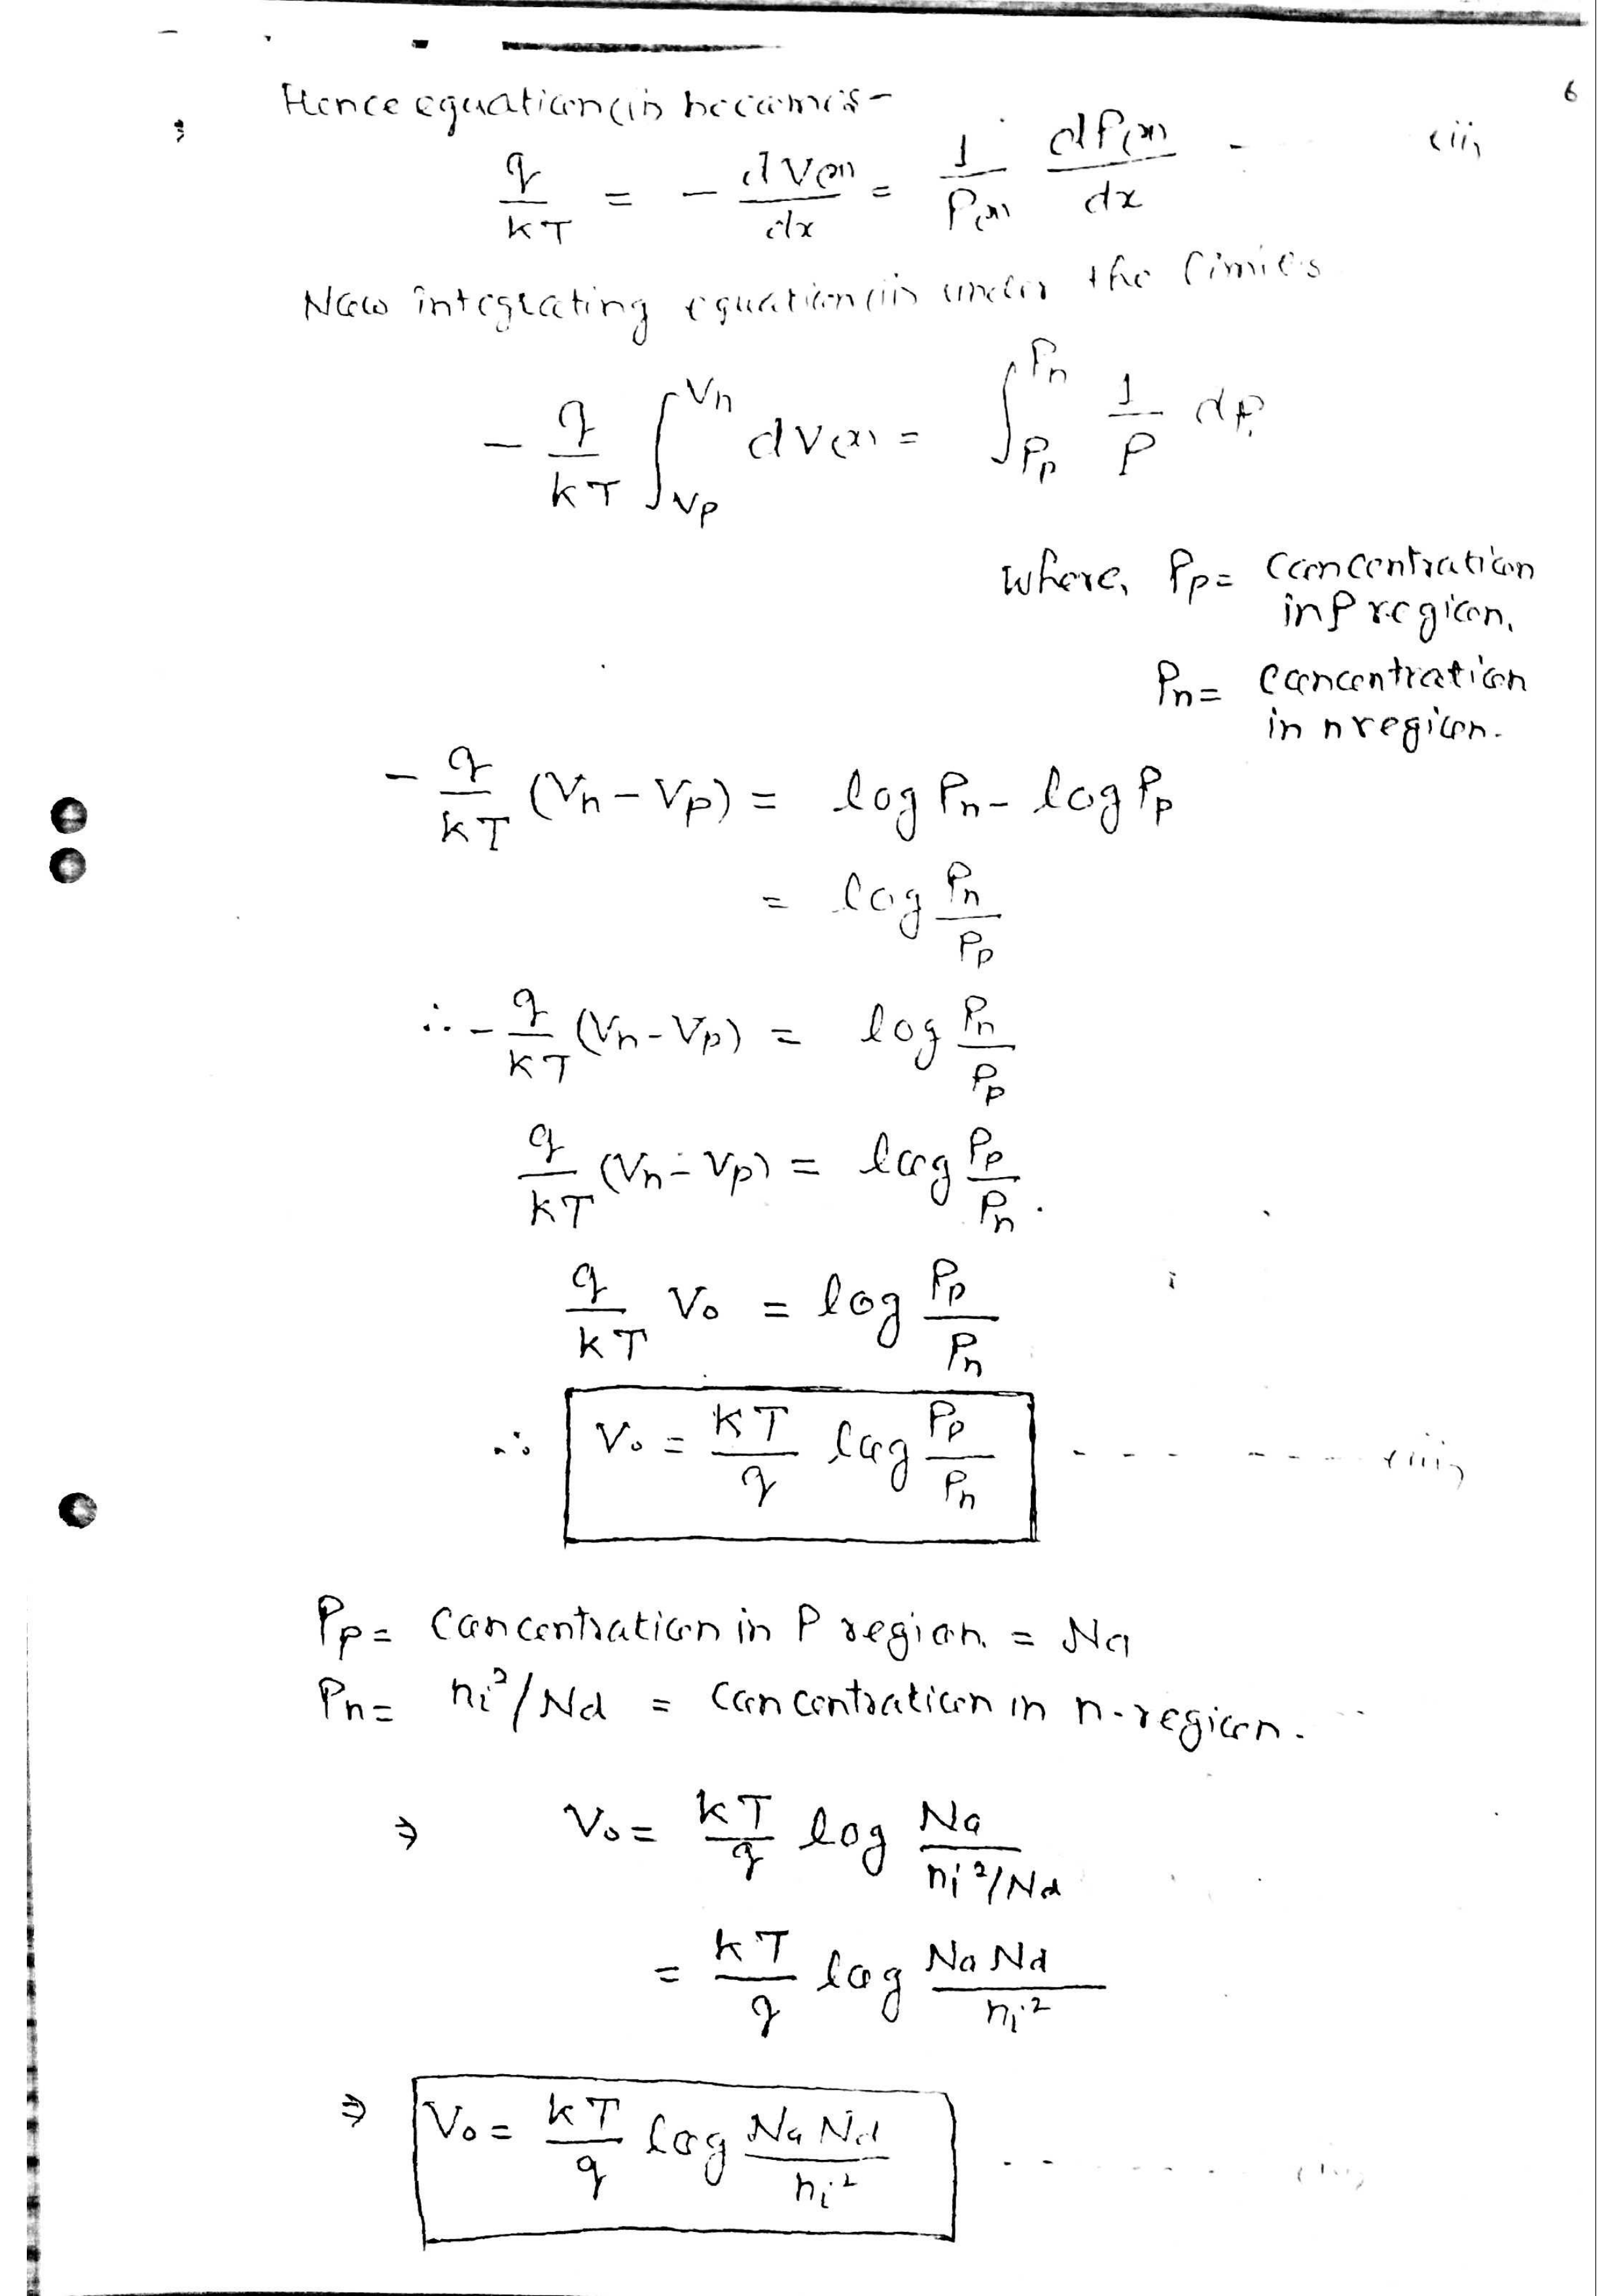 6
Hence equation (i) becomes -
q/kT = - dV(x)/dx = 1/P(x) dP(x)/dx - (ii)
Now integrating equation (ii) under the limits
- q/kT ∫_Vp^Vn dV(x) = ∫_Pp^Pn 1/P dP
where, Pp = concentration
in P region.
Pn = concentration
in n region.
- q/kT (Vn - Vp) = log Pn - log Pp
= log Pn/Pp
∴ - q/kT (Vn - Vp) = log Pn/Pp
q/kT (Vn - Vp) = log Pp/Pn.
q/kT Vo = log Pp/Pn
∴ Vo = KT/q log Pp/Pn - - - - - - - (iii)
Pp = Concentration in P region. = Na
Pn = ni²/Nd = concentration in n-region.
⇒ Vo = kT/q log Na/ni²/Nd
= kT/q log Na Nd/ni²
⇒ Vo = kT/q log Na Nd/ni² - - - - - - (iv)